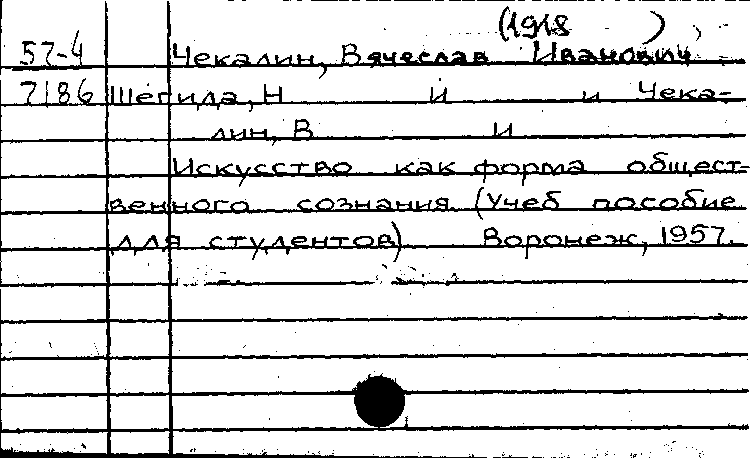 (1918 )
57-4 Чекалин, Вячеслав Иванович
7186 Шегида, Н И и Чека-
лин, В И
Искусство как форма общест-
венного сознания (Учеб пособие
для студентов) Воронеж, 1957.